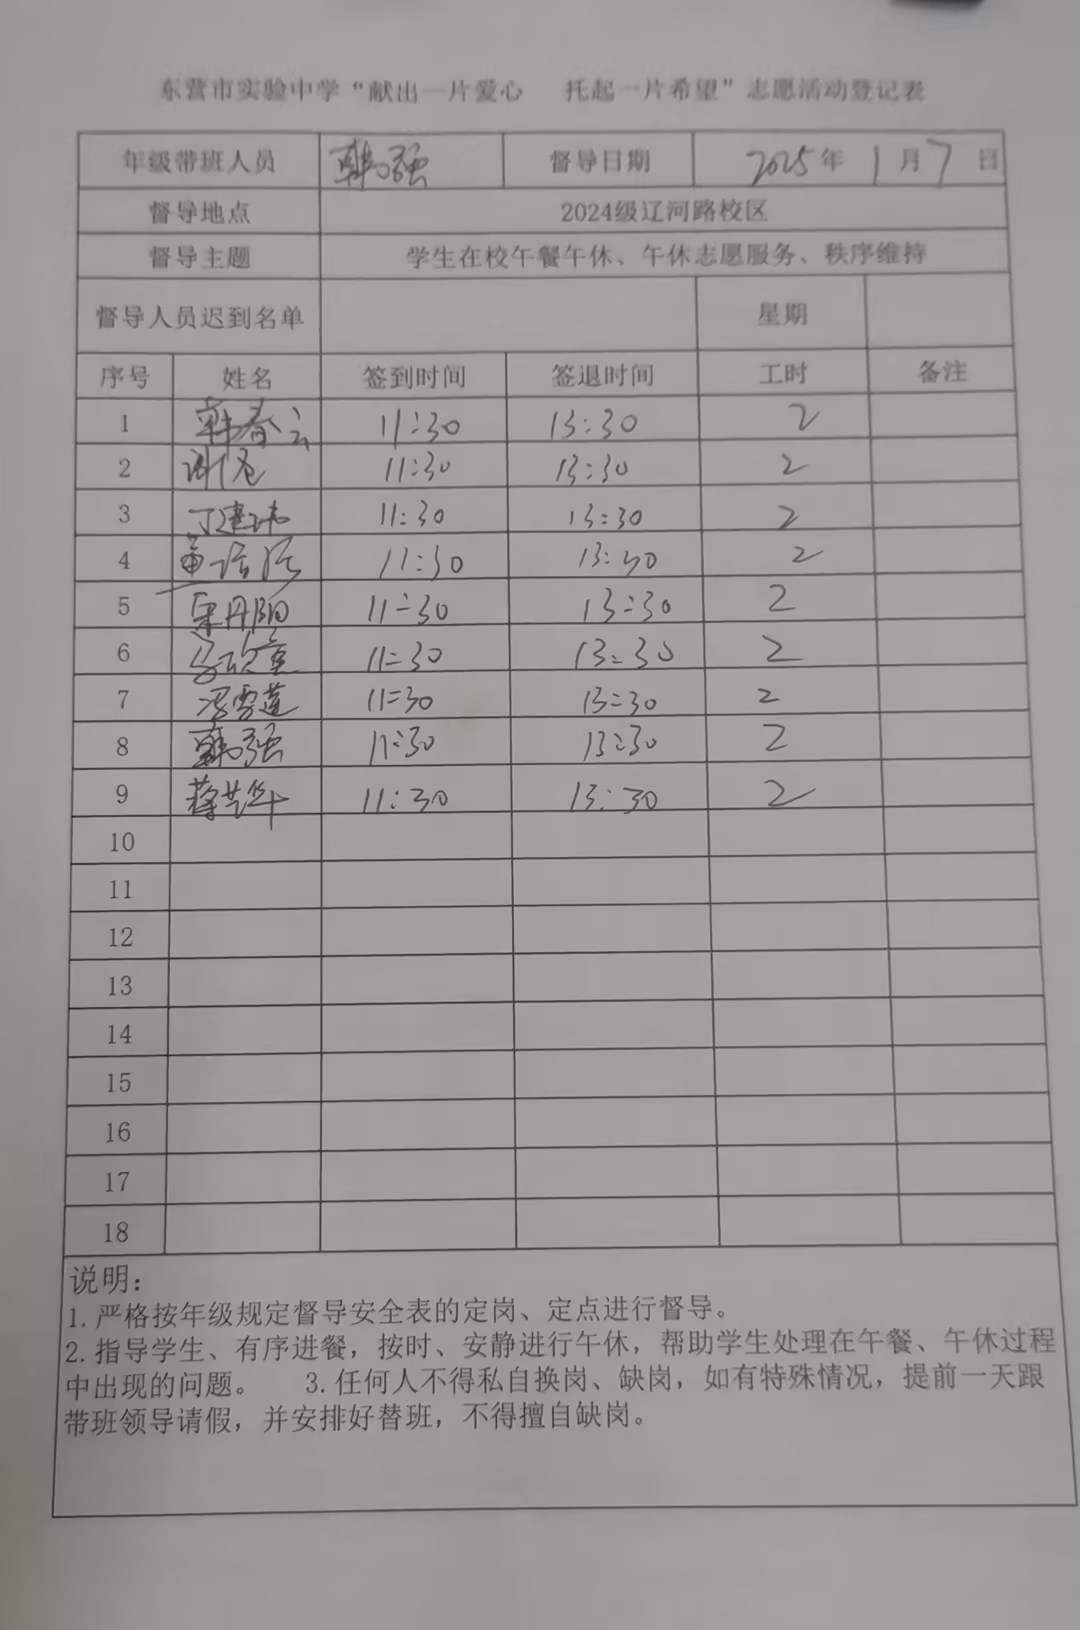 东营市实验中学“献出一片爱心 托起一片希望”志愿活动登记表
年级带班人员 韩强 督导日期 2025年1月7日
督导地点 2024级辽河路校区
督导主题 学生在校午餐午休、午休志愿服务、秩序维持
督导人员迟到名单 星期
序号 姓名 签到时间 签退时间 工时 备注
1 韩春云 11:30 13:30 2
2 11:30 13:30 2
3 丁建玮 11:30 13:30 2
4 11:30 13:30 2
5 宋丹阳 11:30 13:30 2
6 11:30 13:30 2
7 冯雪莲 11:30 13:30 2
8 韩强 11:30 13:30 2
9 11:30 13:30 2
10
11
12
13
14
15
16
17
18
说明：
1.严格按年级规定督导安全表的定岗、定点进行督导。
2.指导学生、有序进餐，按时、安静进行午休，帮助学生处理在午餐、午休过程
中出现的问题。 3.任何人不得私自换岗、缺岗，如有特殊情况，提前一天跟
带班领导请假，并安排好替班，不得擅自缺岗。